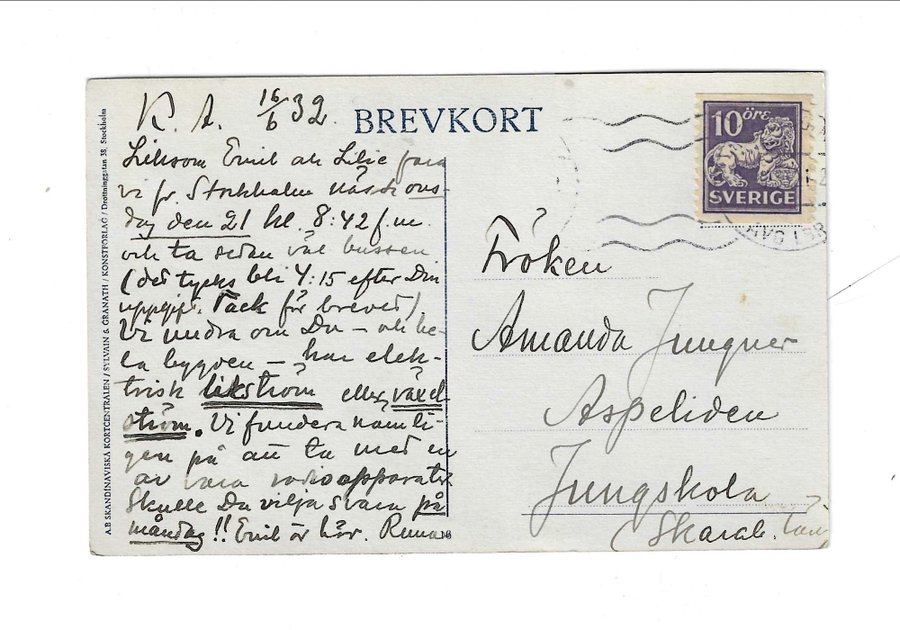 A.B SKANDINAVISKA KORTCENTRALEN / SYLVAIN & GRANATH / KONSTFÖRLAG / Drottninggatan 38, Stockholm
K. A. 16/6 32
BREVKORT
10 öre
SVERIGE
Liksom Emil och Lilie fara
vi fr. Stockholm nästa ons-
dag den 21 kl. 8:42 f.m.
och ta sedan väl bussen
(det tycks bli 4:15 efter Din
uppgift. Tack för brevet).
Vi undra om Du – och he-
la bygden – har elek-
trisk likström eller växel-
ström. Vi fundera nämli-
gen på att ta med en
av våra radioapparater
Skulle Du vilja svara på
måndag!! Emil är här.
Fröken
Amanda Jungner
Aspeliden
Jungskola
(Skarab. län)